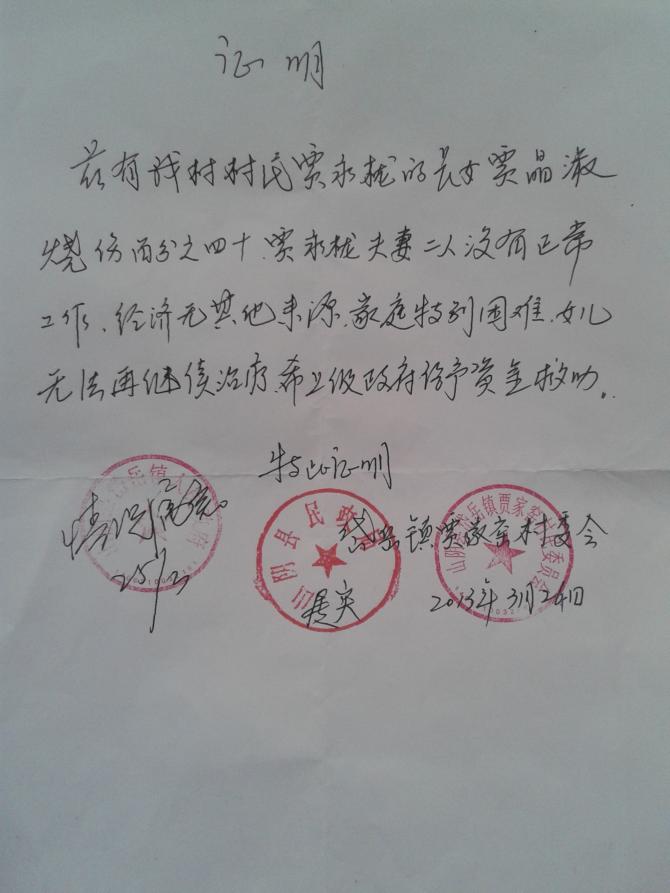 证明
兹有我村村民贾永栊的长女贾晶淑
烧伤百分之四十.贾永栊夫妻二人没有正常
工作、经济无其他来源.家庭特别困难.女儿
无法再继续治疗.希上级政府给予资金救助..
特此证明
情况属实。
25/3
山阴县民政局
属实
岱岳镇贾家窑村委会
2013年3月24日